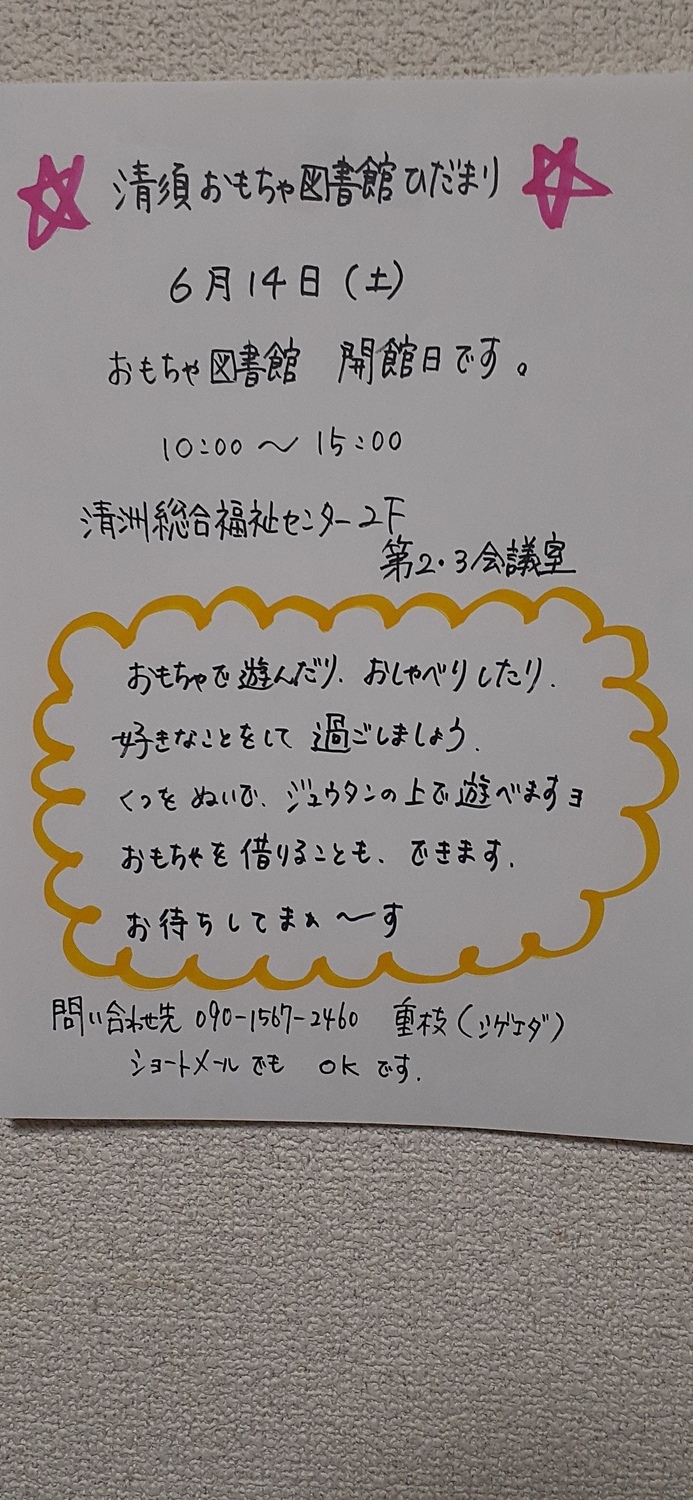 清須おもちゃ図書館ひだまり
6月14日(土)
おもちゃ図書館 開館日です。
10:00〜15:00
清洲総合福祉センター2F
第2・3会議室
おもちゃで遊んだり、おしゃべりしたり、
好きなことをして過ごしましょう。
くつをぬいで、ジュウタンの上で遊べますョ
おもちゃを借りることも、できます。
お待ちしてまぁ〜す
問い合わせ先 090-1567-2460 重枝(シゲエダ)
ショートメールでも OKです。